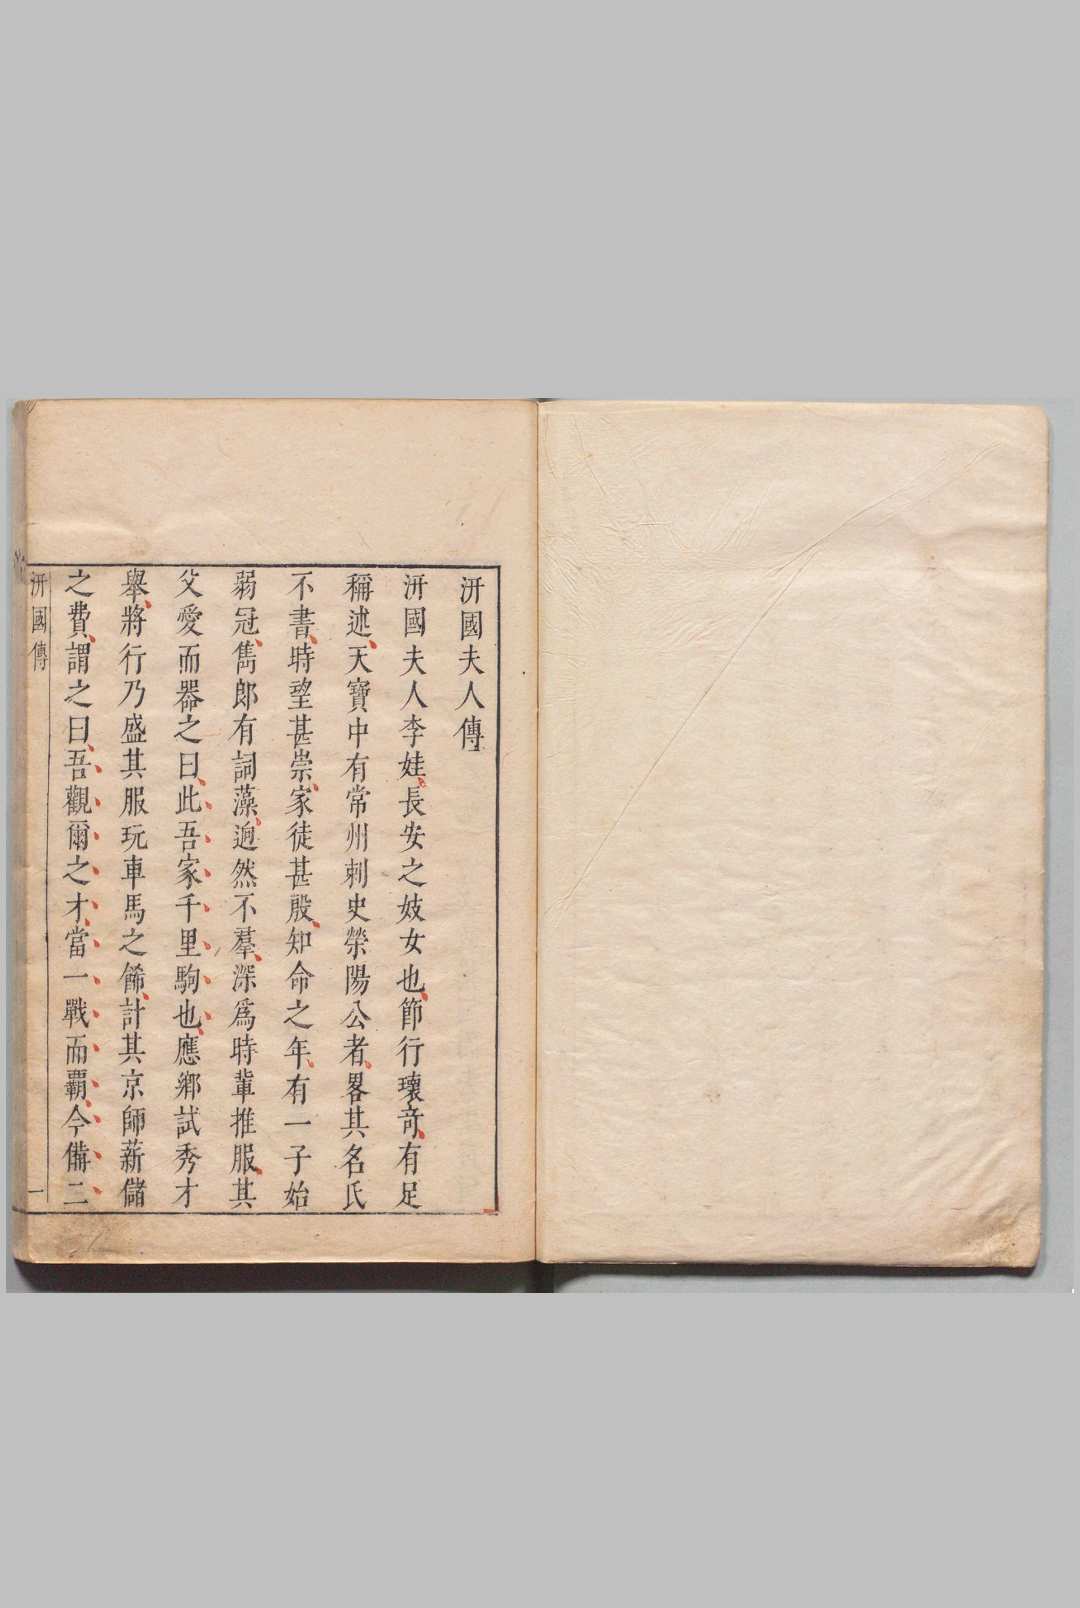 汧國夫人傳
汧國夫人李娃長安之妓女也節行瓌奇有足
稱述天寶中有常州刺史滎陽公者畧其名氏
不書時望甚崇家徒甚殷知命之年有一子始
弱冠雋郎有詞藻逈然不羣深爲時輩推服其
父愛而器之曰此吾家千里駒也應鄉試秀才
舉將行乃盛其服玩車馬之餙計其京師薪儲
之費謂之曰吾觀爾之才當一戰而覇今備二
汧國傳
一